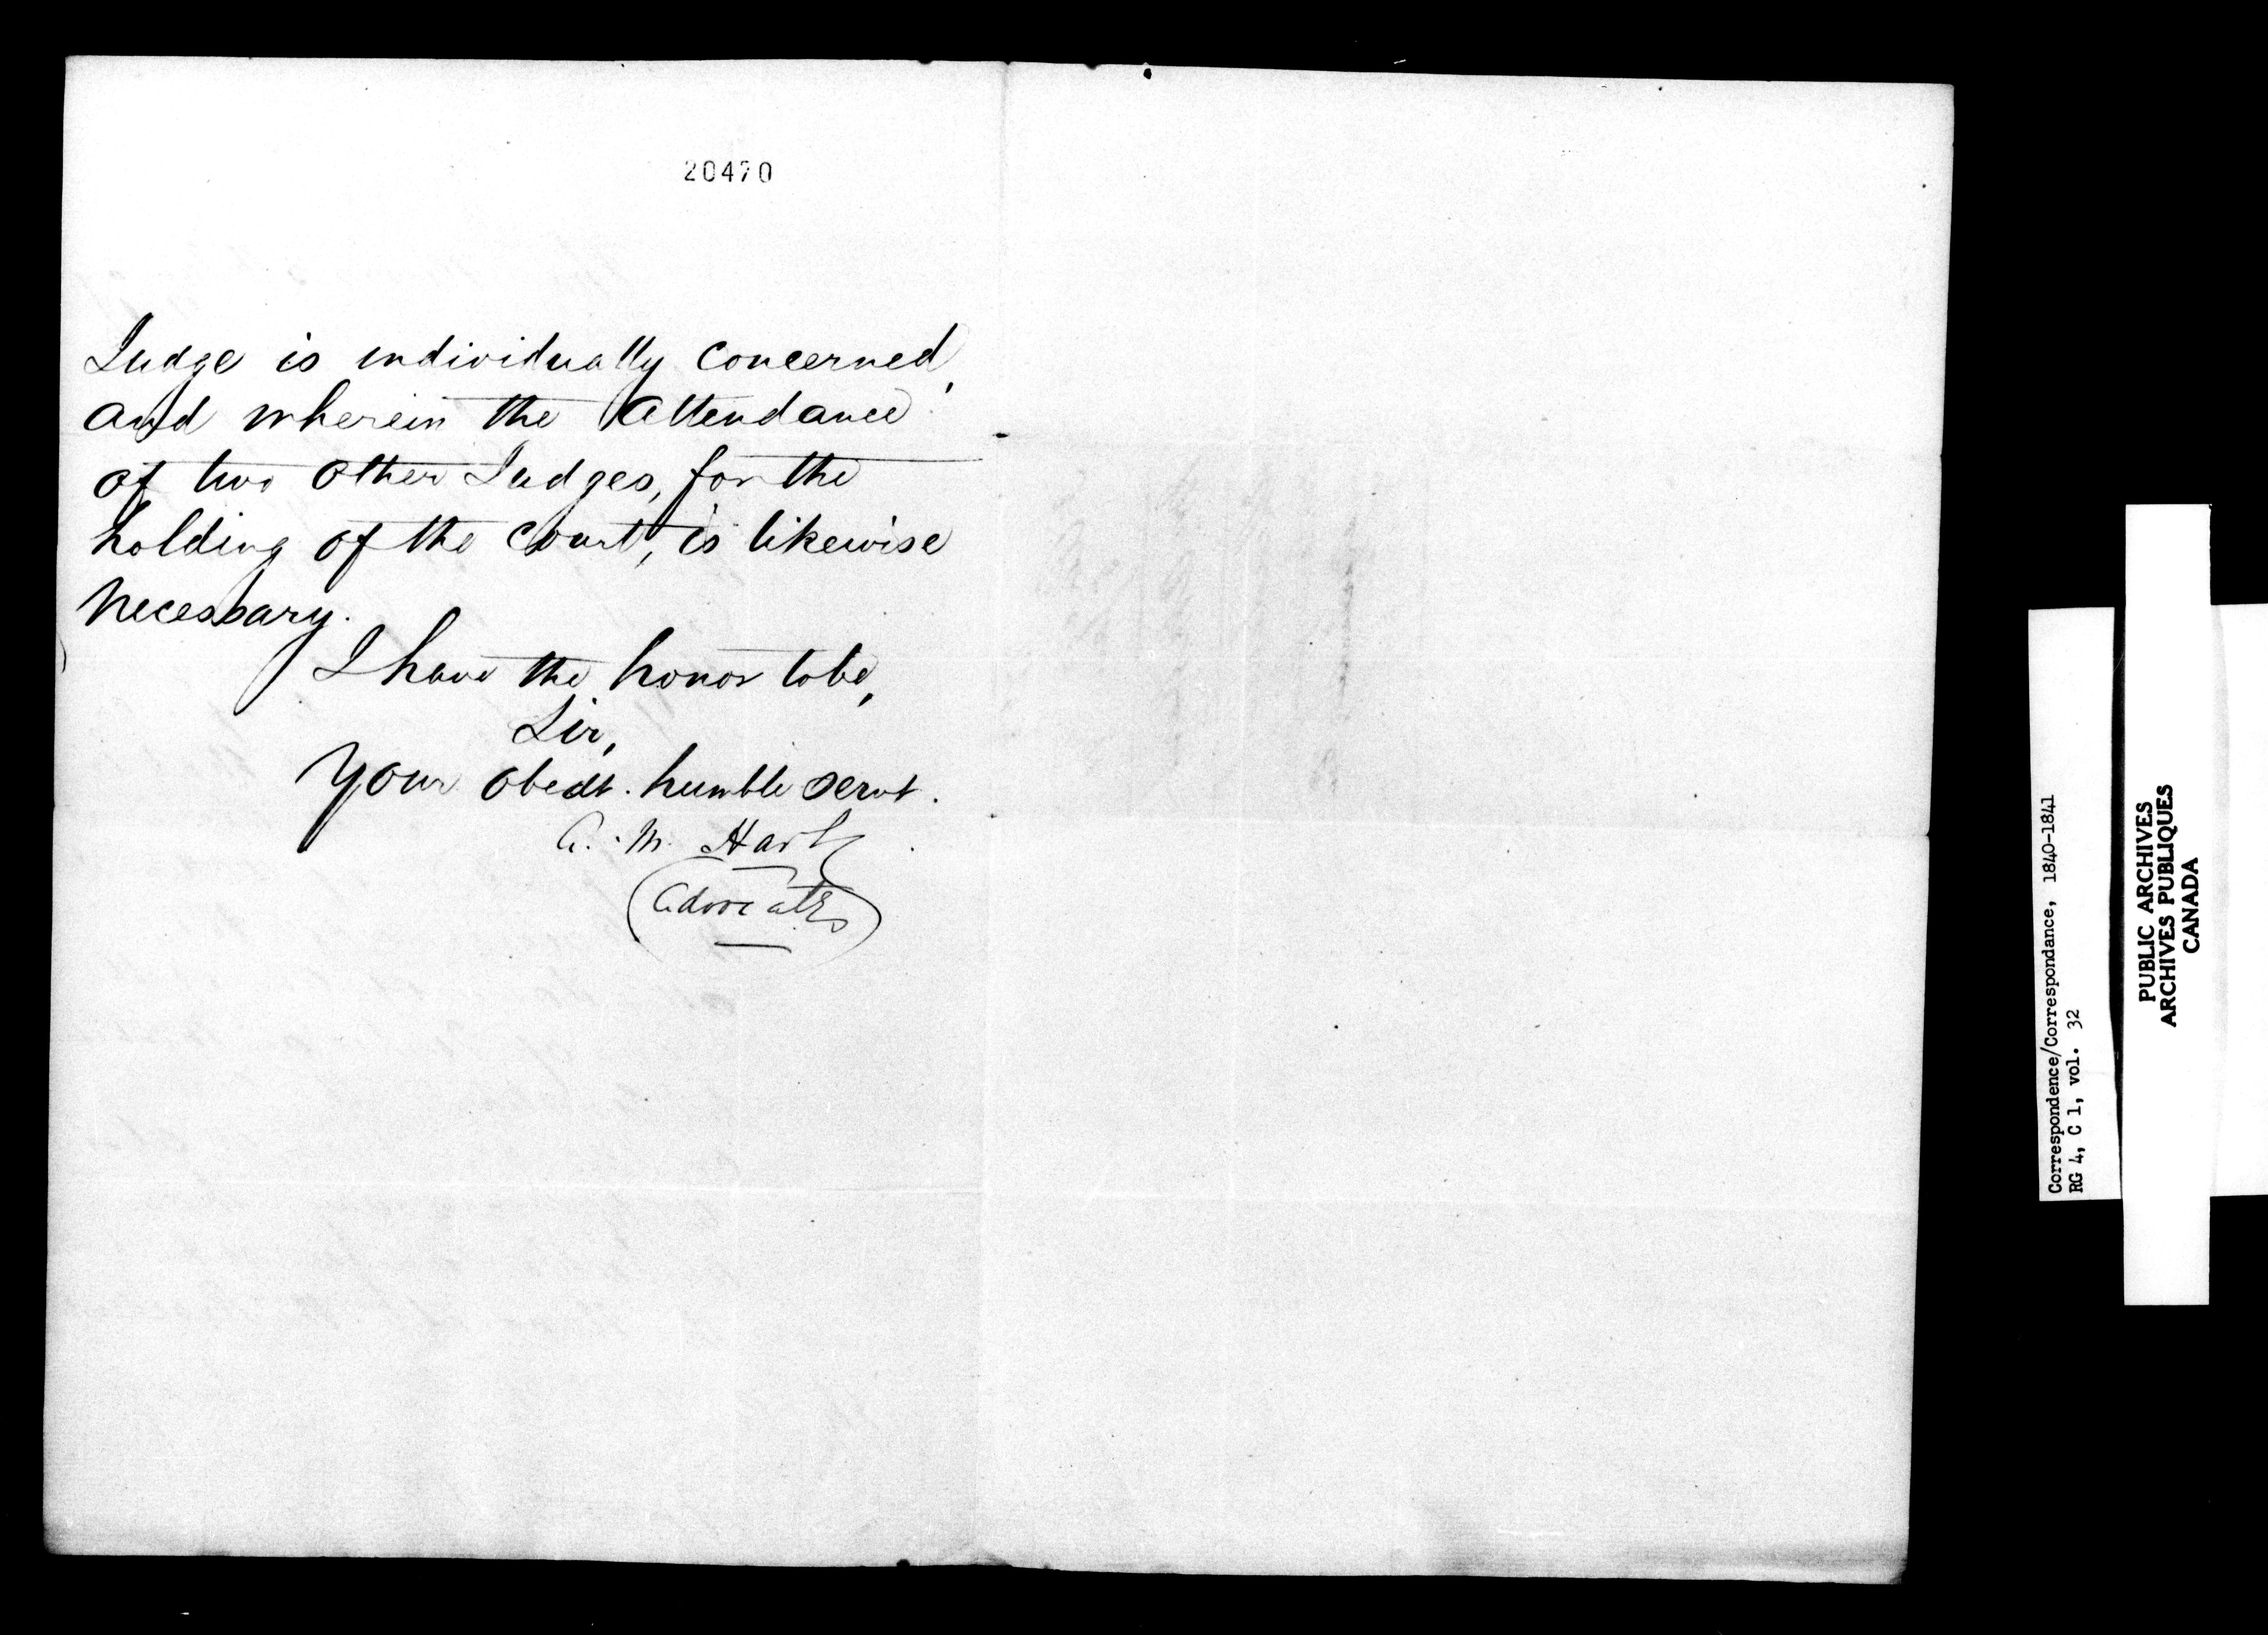 20470
Judge is individually concerned,
and wherein the Attendance
of two other Judges, for the
holding of the Court, is likewise
necessary.
I have the honor to be,
Sir,
Your obedt. humble servt.
A. M. Hart
(Advocate)
Correspondence/Correspondance, 1840-1841
RG 4, C 1, vol. 32
PUBLIC ARCHIVES
ARCHIVES PUBLIQUES
CANADA